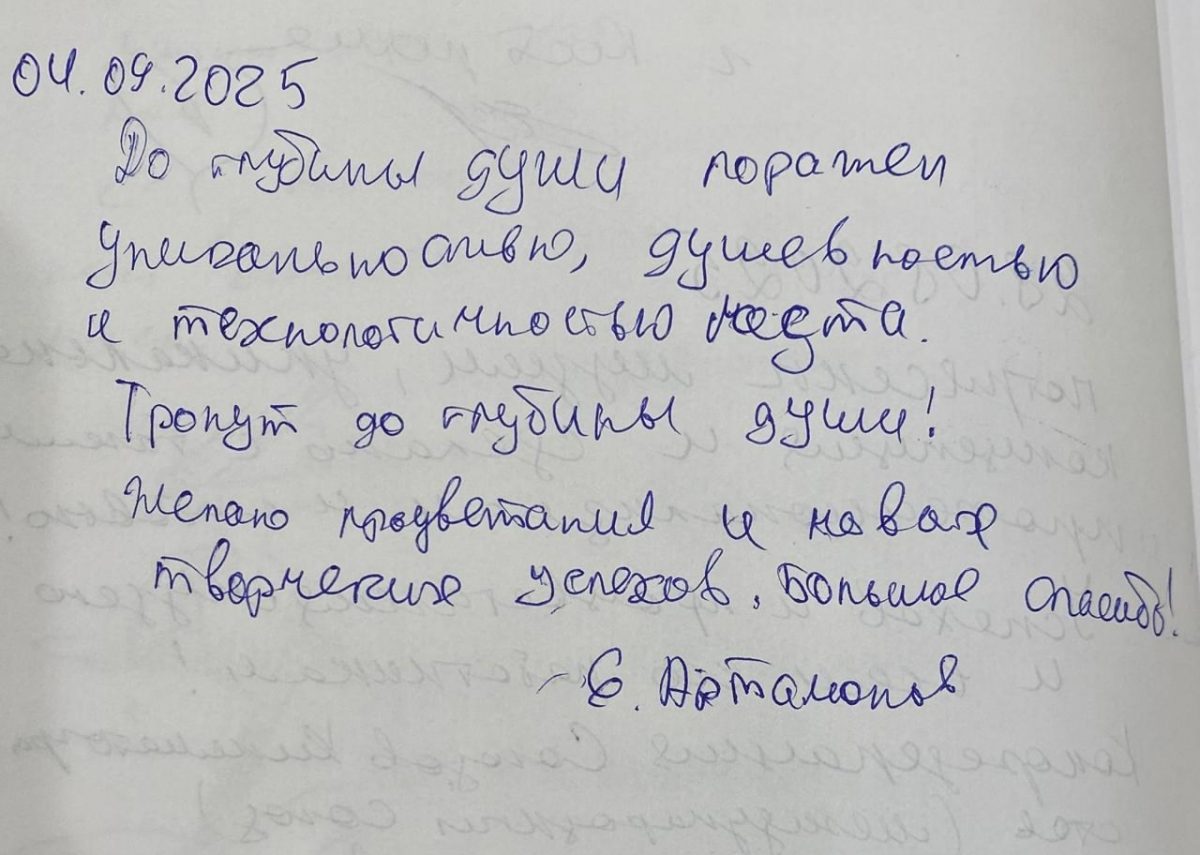 04.09.2025
До глубины души поражен
уникальностью, душевностью
и технологичностью места.
Тронут до глубины души!
Желаю процветания и новых
творческих успехов. Большое спасибо!
С. Артамонов